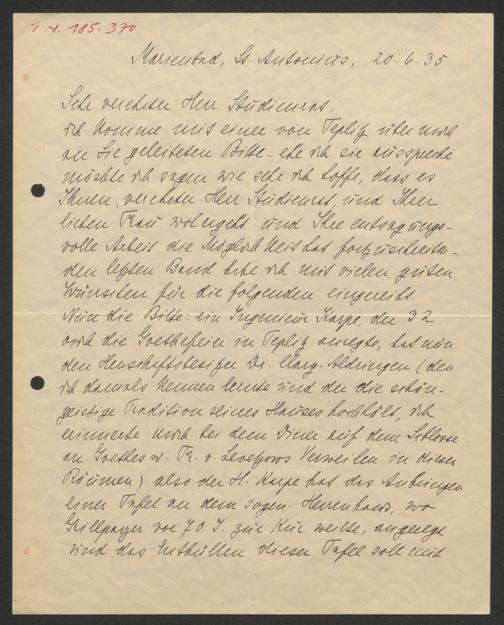 I. N. 185.370
Marienbad, St. Antonius, 20.6.35
Sehr verehrter Herr Studienrat.
ich komme mit einer von Teplitz über mich
an Sie geleiteten Bitte. ehe ich sie ausspreche
möchte ich sagen wie sehr ich hoffe, dass es
Ihnen, verehrter Herr Studienrat, und Ihrer
lieben Frau wohlgeht und Ihre entsagungs-
volle Arbeit die Möglichkeit hat fortzuschreiten-
den letzten Band habe ich mit vielen guten
Wünschen für die folgenden eingereiht.
Nun die Bitte: ein Ingenieur Karpe, der 32
auch die Goethefeier in Teplitz anregte, hat nun
den Herrschaftsbesitzer Dr. Clary-Aldringen (den
ich damals kennen lernte und der die schön-
geistige Tradition seines Hauses hochhält, ich
erinnerte mich bei dem Diner auf dem Schlosse
an Goethes u. Fr. v. Levetzows Verweilen in diesen
Räumen) also der H. Karpe hat das Anbringen
einer Tafel an dem sogen. Herrenhaus, wo
Grillparzer vor 70 J. zur Kur weilte, angeregt
und das Enthüllen dieser Tafel soll mit